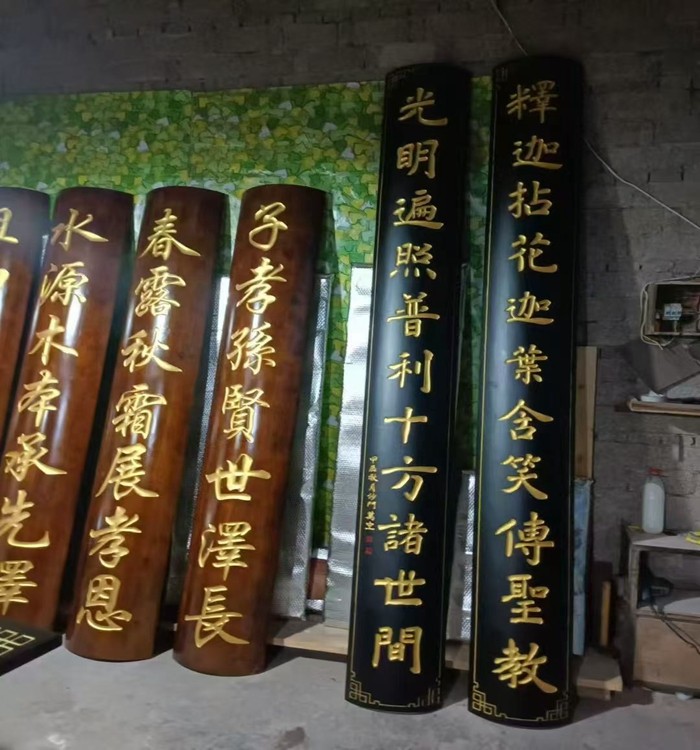 釋迦拈花迦葉含笑傳聖教
光明遍照普利十方諸世間
子孝孫賢世澤長
春露秋霜展孝恩
水源木本承先澤